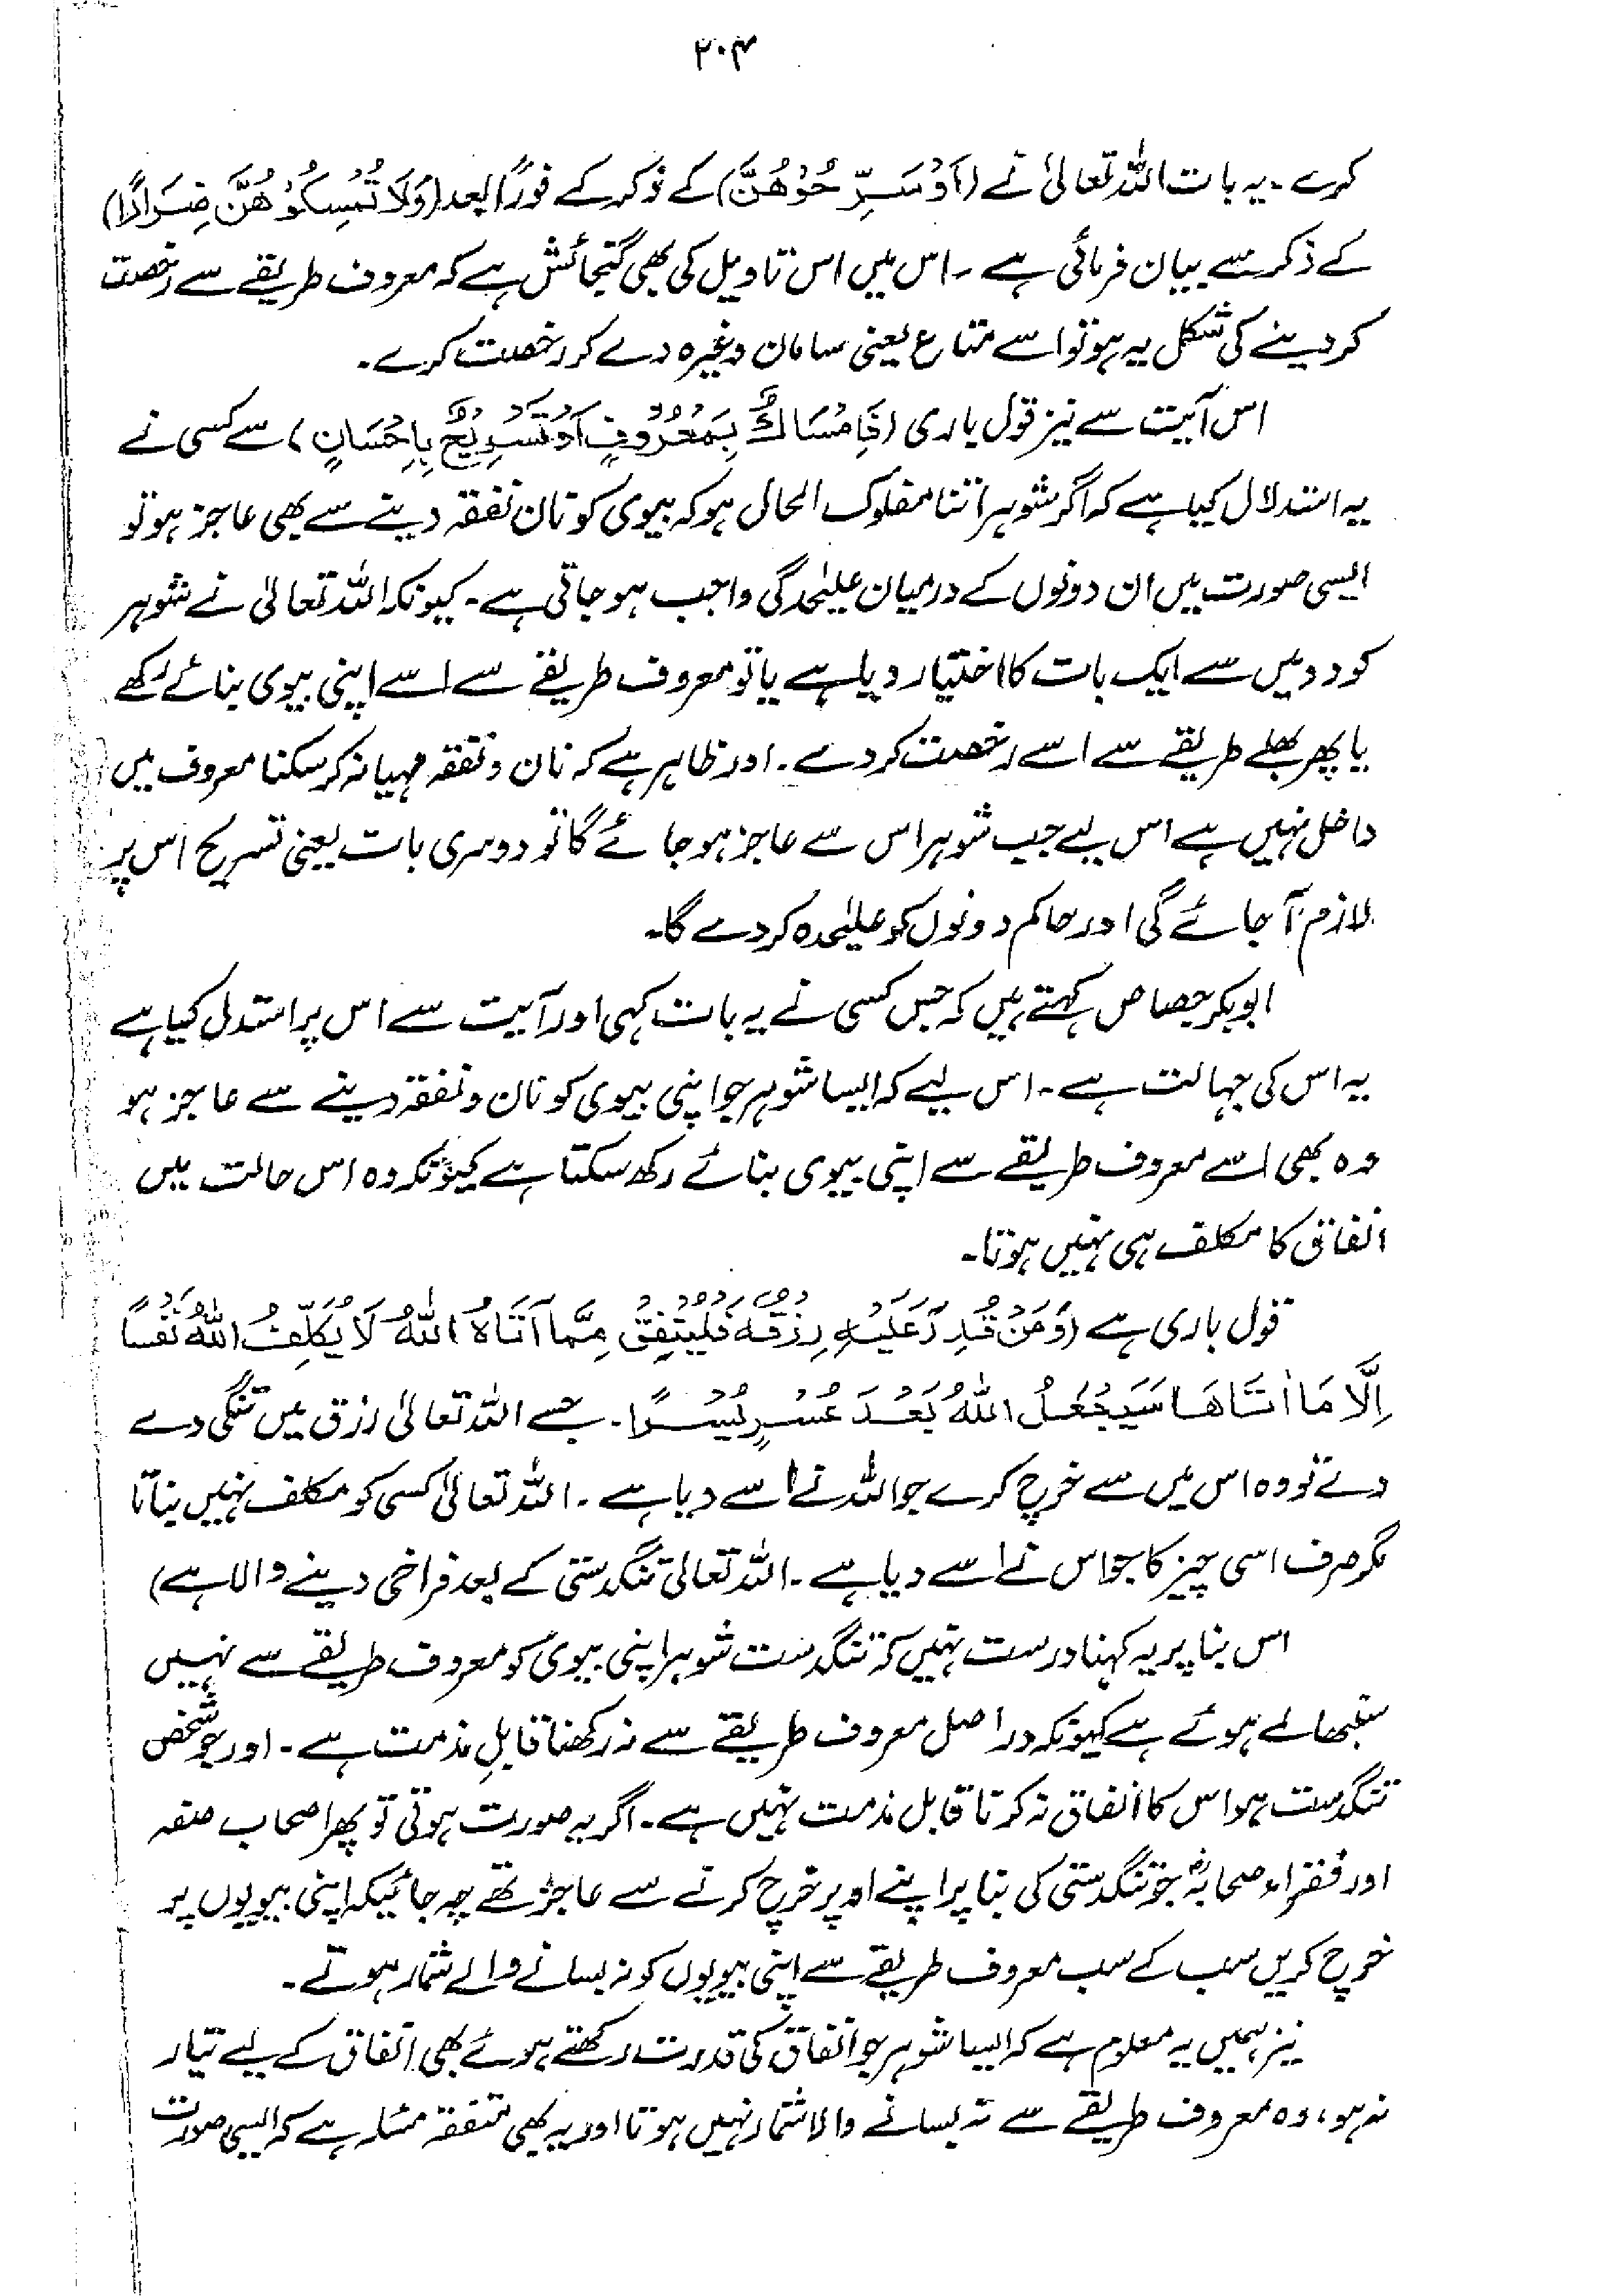 ۲۰۴
کرے۔ یہ بات اللہ تعالیٰ نے (اَوْ سَرِّحُوْهُنَّ) کے ذکر کے فوراً بعد (وَلَا تُمْسِكُوْهُنَّ ضِرَارًا)
کے ذکر سے بیان فرمائی ہے۔ اس میں اس تاویل کی بھی گنجائش ہے کہ معروف طریقے سے رخصت
کر دینے کی شکل یہ ہو تو اسے متاع یعنی سامان وغیرہ دے کر رخصت کرے۔
اس آیت سے نیز قول باری (فَاِمْسَاكٌ بِمَعْرُوْفٍ اَوْ تَسْرِيْحٌ بِاِحْسَانٍ) سے کسی نے
یہ استدلال کیا ہے کہ اگر شوہر اتنا مفلوک الحال ہو کہ بیوی کو نان نفقہ دینے سے بھی عاجز ہو تو
ایسی صورت میں ان دونوں کے درمیان علیٰحدگی واجب ہو جاتی ہے۔ کیونکہ اللہ تعالیٰ نے شوہر
کو دو میں سے ایک بات کا اختیار دیا ہے یا تو معروف طریقے سے اسے اپنی بیوی بنائے رکھے
یا پھر بھلے طریقے سے اسے رخصت کر دے۔ اور ظاہر ہے کہ نان و نفقہ مہیا نہ کر سکنا معروف میں
داخل نہیں ہے اس لیے جب شوہر اس سے عاجز ہو جائے گا تو دوسری بات یعنی تسریح اس پر
لازم آ جائے گی اور حاکم دونوں کو علیٰحدہ کر دے گا۔
ابو بکر جصاص کہتے ہیں کہ جس کسی نے یہ بات کہی اور آیت سے اس پر استدل کیا ہے
یہ اس کی جہالت ہے۔ اس لیے کہ ایسا شوہر جو اپنی بیوی کو نان و نفقہ دینے سے عاجز ہو
وہ بھی اسے معروف طریقے سے اپنی بیوی بنائے رکھ سکتا ہے کیونکہ وہ اس حالت میں
انفاق کا مکلف ہی نہیں ہوتا۔
قول باری ہے (وَمَنْ قُدِرَ عَلَيْهِ رِزْقُهٗ فَلْيُنْفِقْ مِمَّا آتَاهُ اللّٰهُ لَا يُكَلِّفُ اللّٰهُ نَفْسًا
اِلَّا مَا اٰتَاهَا سَيَجْعَلُ اللّٰهُ بَعْدَ عُسْرٍ يُسْرًا۔ جسے اللہ تعالیٰ رزق میں تنگی دے
دے تو وہ اس میں سے خرچ کرے جو اللہ نے اسے دیا ہے۔ اللہ تعالیٰ کسی کو مکلف نہیں بناتا
مگر صرف اسی چیز کا جو اس نے اسے دیا ہے۔ اللہ تعالیٰ تنگدستی کے بعد فراخی دینے والا ہے)
اس بنا پر یہ کہنا درست نہیں کہ تنگدست شوہر اپنی بیوی کو معروف طریقے سے نہیں
سنبھالے ہوئے ہے کیونکہ دراصل معروف طریقے سے نہ رکھنا قابلِ مذمت ہے۔ اور جو شخص
تنگدست ہو اس کا انفاق نہ کرنا قابل مذمت نہیں ہے۔ اگر یہ صورت ہوتی تو پھر اصحاب صفہ
اور فقراء صحابہؓ جو تنگدستی کی بنا پر اپنے اوپر خرچ کرنے سے عاجز تھے چہ جائیکہ اپنی بیویوں پر
خرچ کریں سب کے سب معروف طریقے سے اپنی بیویوں کو نہ بسانے والے شمار ہوتے۔
نیز ہمیں یہ معلوم ہے کہ ایسا شوہر جو انفاق کی قدرت رکھتے ہوئے بھی انفاق کے لیے تیار
نہ ہو، وہ معروف طریقے سے نہ بسانے والا شمار نہیں ہوتا اور یہ بھی متفقہ مسٔلہ ہے کہ ایسی صورت